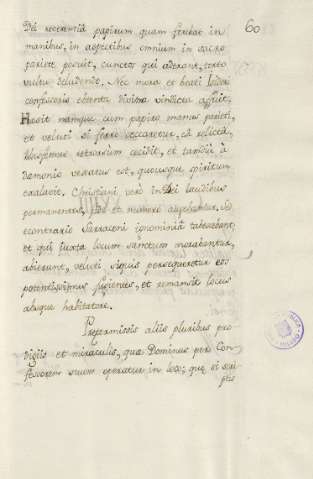 60
Dei reverentiâ papirum quam ferebat in
manibus, in aspectibus omnium in sacro
pariete posuit, cunctos qui aderant, torto
vultu deludendo. Nec mora et beati Isidori
confessoris obtentu divina vindicta affuit.
Hæsit namque cum papiro manus parieti,
et veluti si ferro seccaretur, eâ relictâ,
blasfemus retrorsum cecidit, et tamdiu à
Demonio vexatus est, quousque spiritum
exalavit. Christiani verò in Dei laudibus
permanentes, fide et numero augebantur, è
contrario Sarraceni ignominiâ tabescebant
et qui juxta locum sanctum morabantur,
abierunt, veluti siquis persequeretur eos
potentissimus fugientes, et remansit locus
absque habitatore.
Prætermissis aliis pluribus pro-
digiis et miraculis, quæ Dominus per Con-
fessorem suum operatus in loco; quæ si scri-
ptis